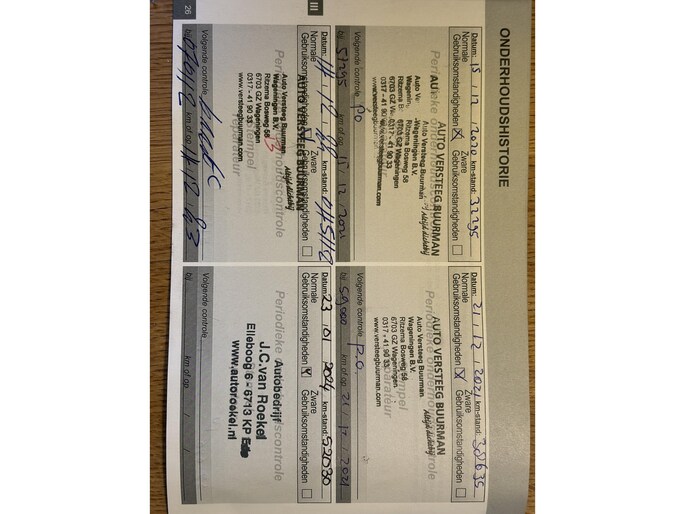 ONDERHOUDSHISTORIE
Datum: 15 / 12 / 2020 km-stand: 32295
Normale Gebruiksomstandigheden
Zware Gebruiksomstandigheden
AUTO VERSTEEG BUURMAN
Auto Versteeg Buurman
Wageningen B.V.
Ritzema Bosweg 58
6703 GZ Wageningen
0317 - 41 90 33
www.versteegbuurman.com
Volgende controle: PO
bij: km of op: 15 / 12 / 2021
Datum: km-stand:
Normale Gebruiksomstandigheden
Zware Gebruiksomstandigheden
AUTO VERSTEEG BUURMAN
Auto Versteeg Buurman
Wageningen B.V.
Ritzema Bosweg 58
6703 GZ Wageningen
0317 - 41 90 33
www.versteegbuurman.com
Volgende controle:
bij: km of op:
Datum: 21 / 12 / 2021 km-stand: 38635
Normale Gebruiksomstandigheden
Zware Gebruiksomstandigheden
Periodieke onderhoudscontrole
AUTO VERSTEEG BUURMAN
Auto Versteeg Buurman
Wageningen B.V.
Ritzema Bosweg 58
6703 GZ Wageningen
0317 - 41 90 33
www.versteegbuurman.com
Volgende controle: P.O.
bij: km of op: 21 / 12 / 2021
Datum: 23 / 01 / 2024 km-stand: 52030
Normale Gebruiksomstandigheden
Zware Gebruiksomstandigheden
Periodieke onderhoudscontrole
Autobedrijf
J.C. van Roekel
Elleboog 6 - 6713 KP Ede
www.autoroekel.nl
Volgende controle:
bij: km of op: / /
III
26